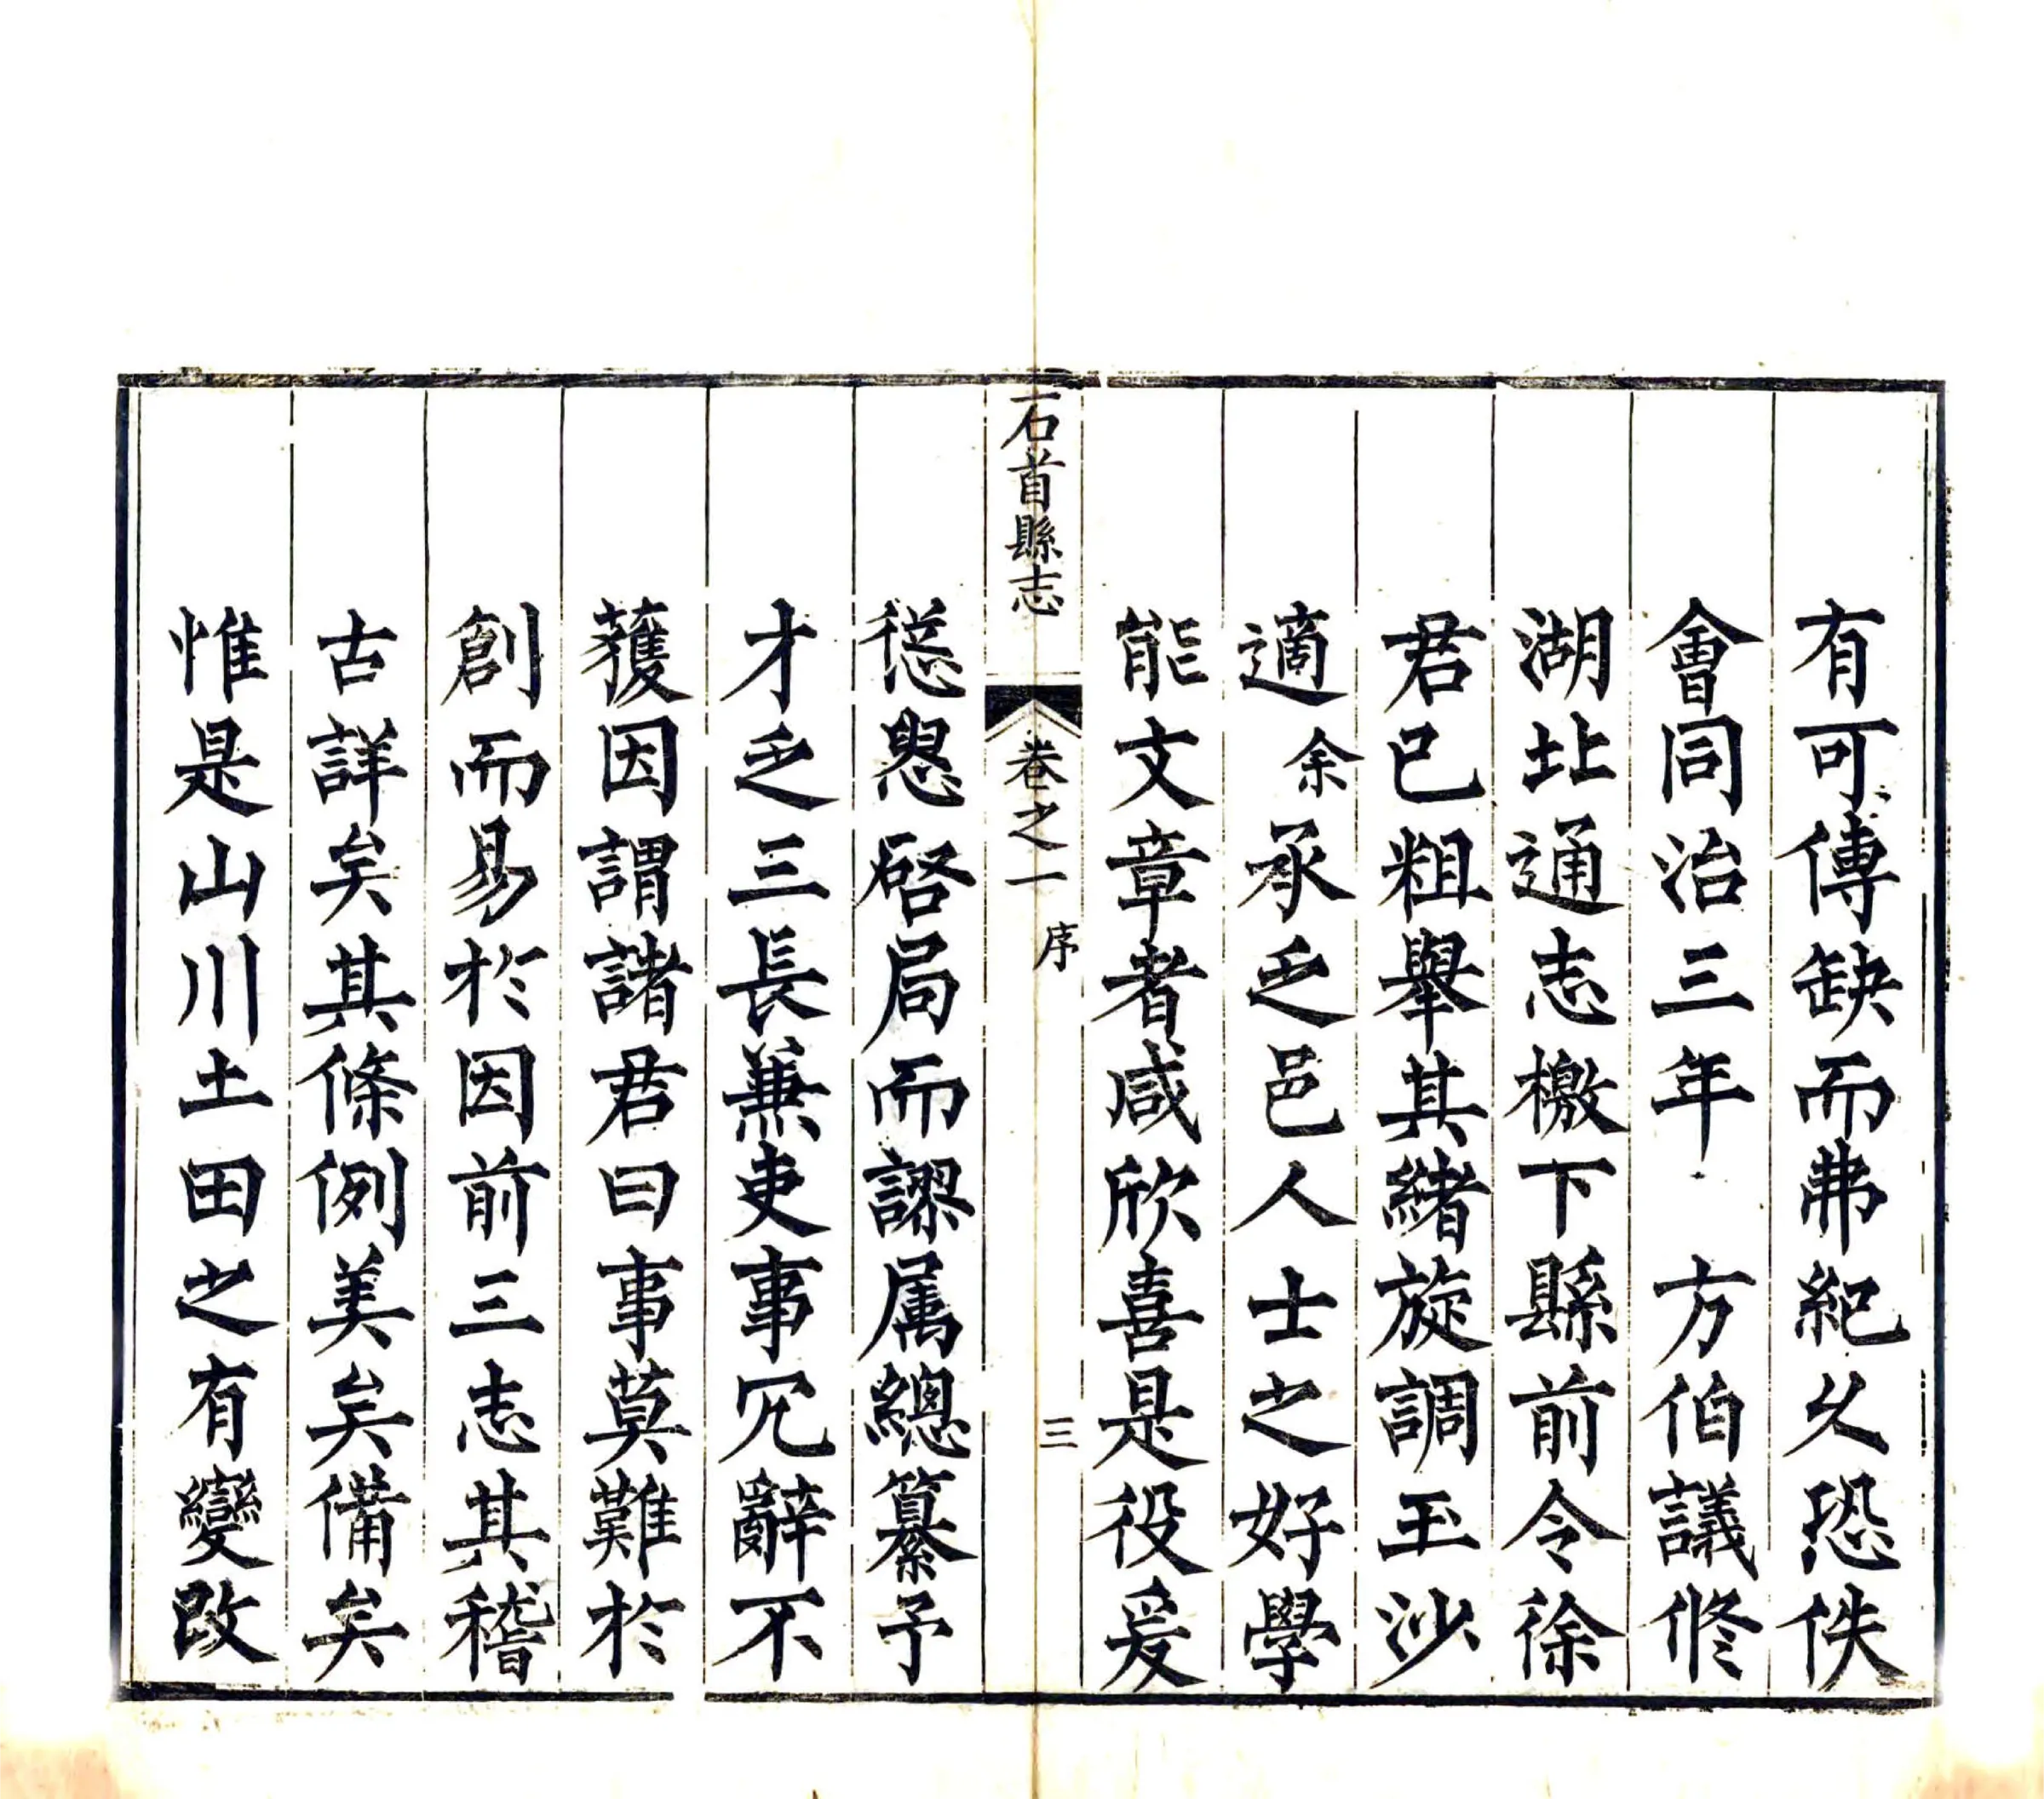 有可傳缺而弗紀久恐佚
會同治三年 方伯議修
湖北通志檄下縣前令徐
君已粗舉其緒旋調玉沙
適余承乏邑人士之好學
能文章者咸欣喜是役爰
石首縣志 卷之一 序 三
慫恿啓局而謬属總纂予
才乏三長蕪吏事冗辭不
獲因謂諸君曰事莫難於
創而易於因前三志其稽
古詳矣其條例美矣備矣
惟是山川土田之有變改